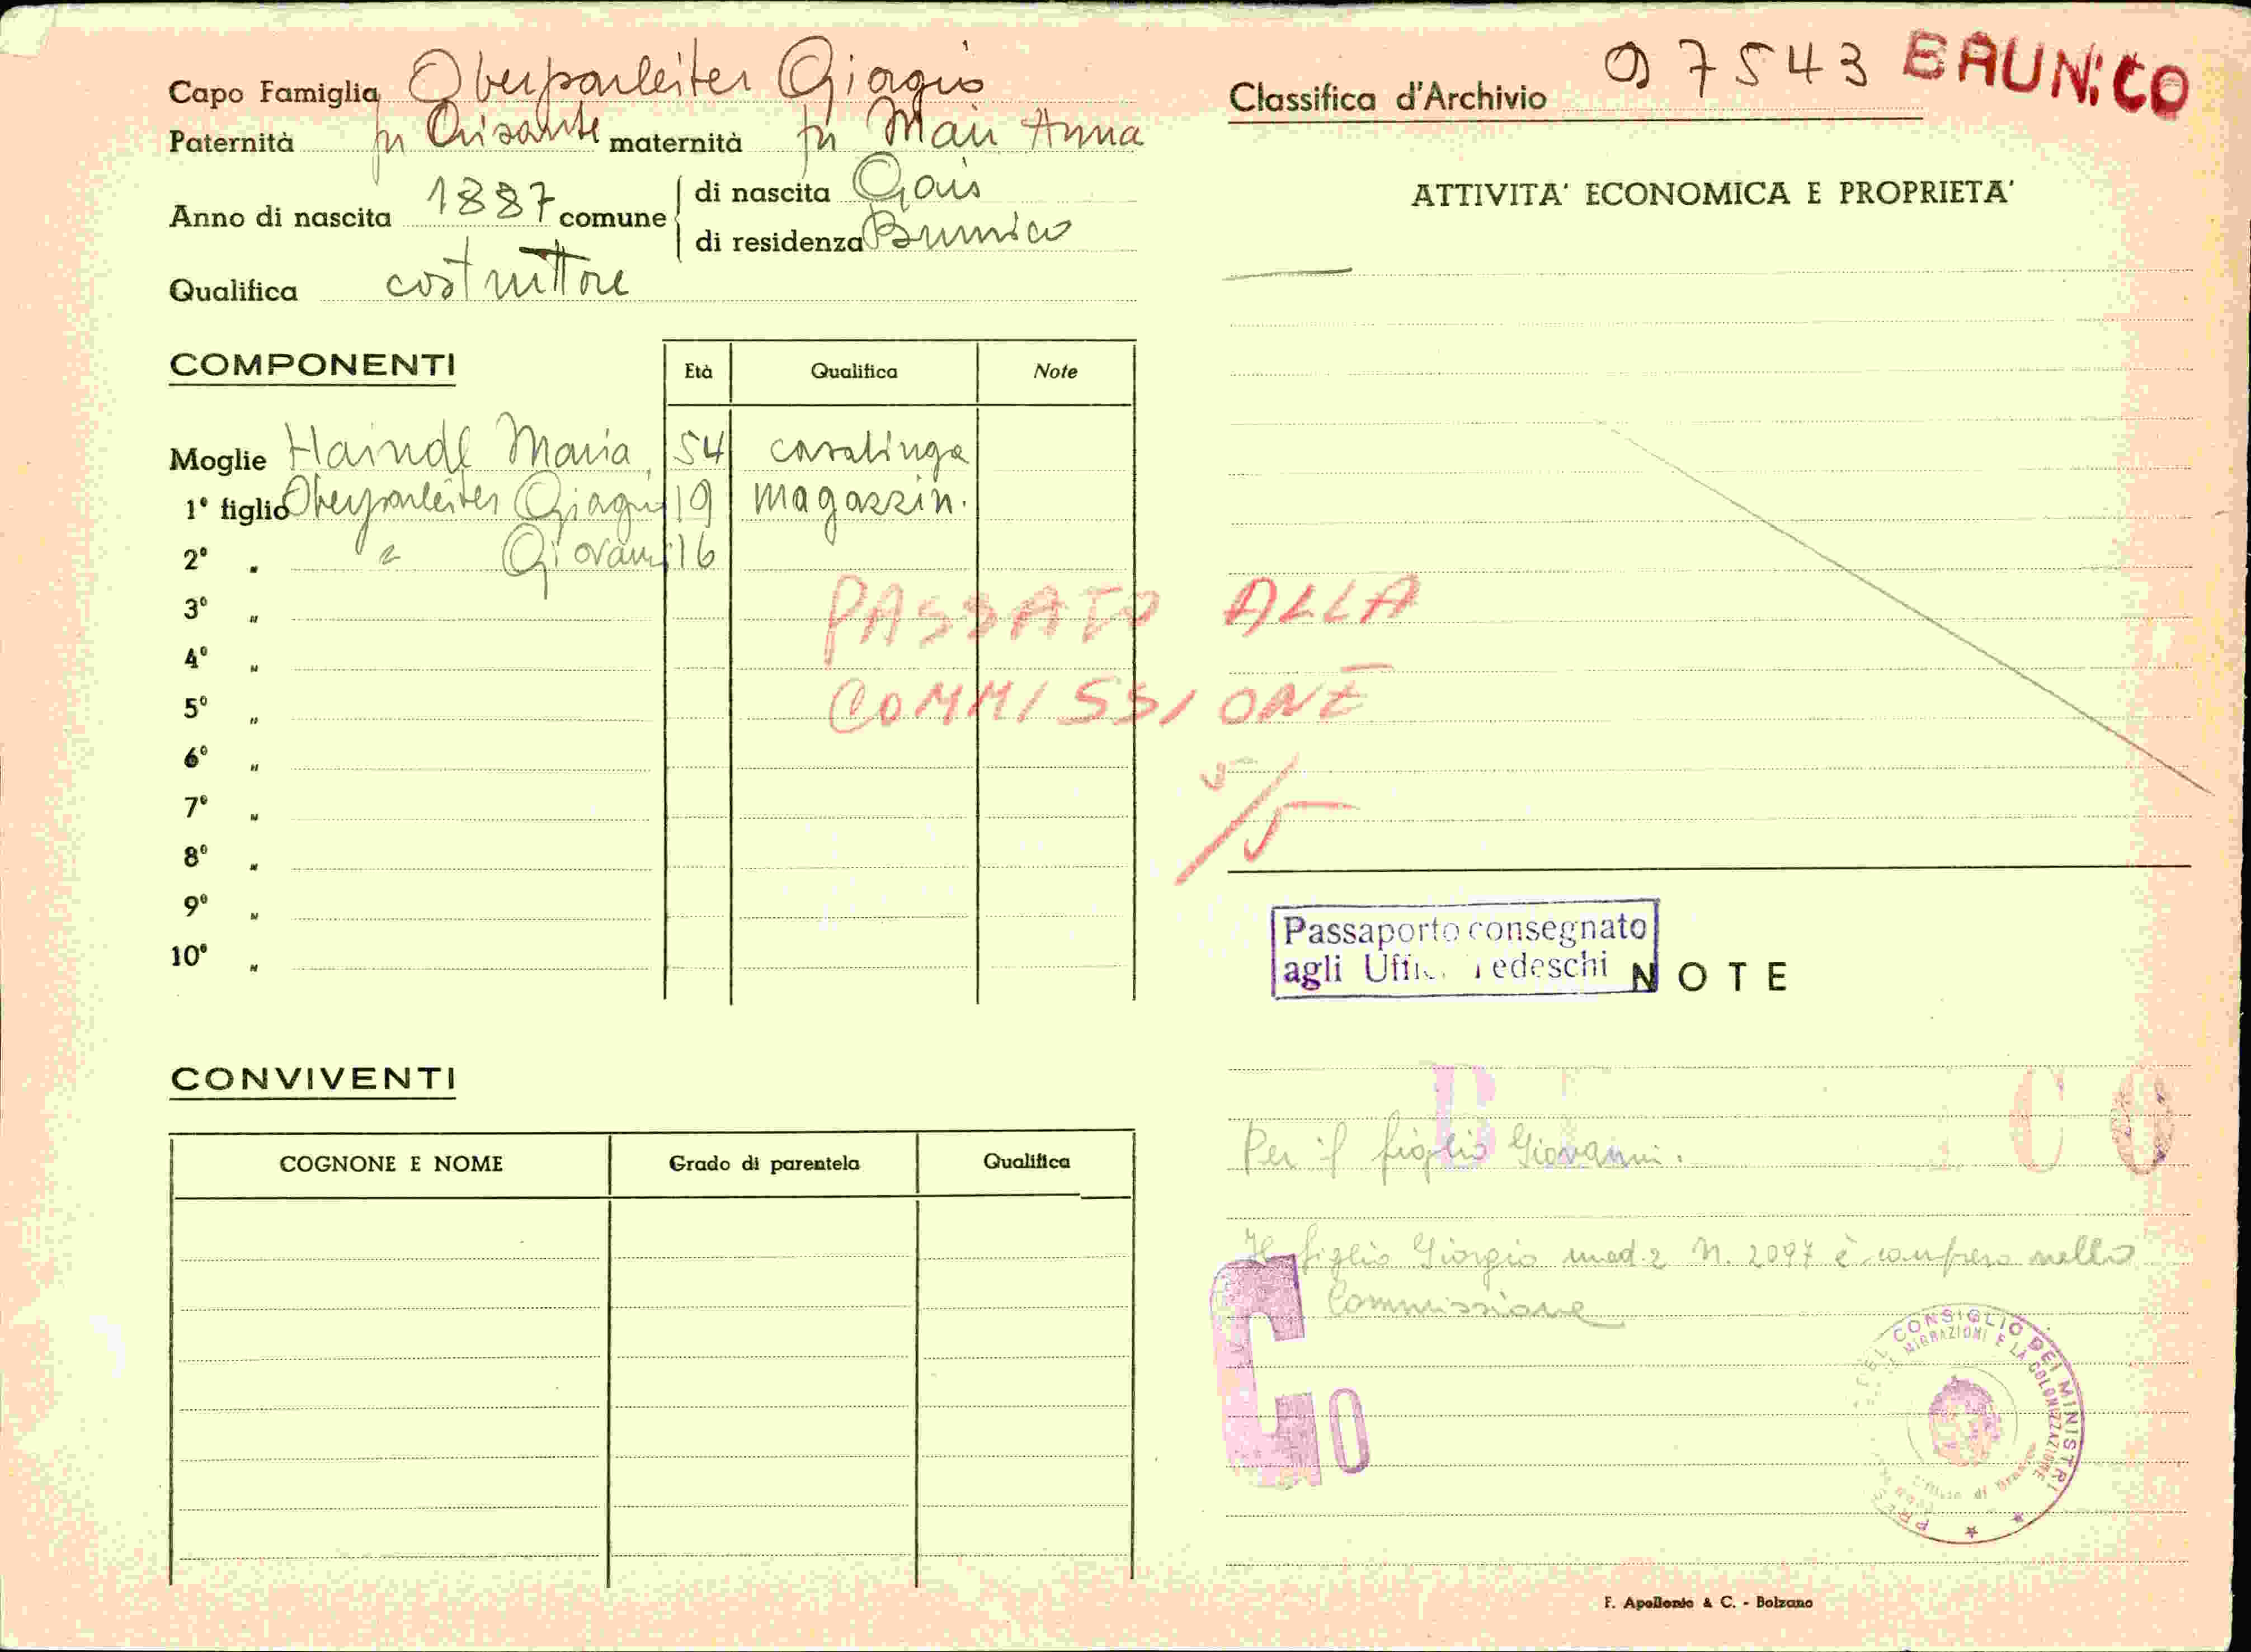 Capo Famiglia Oberparleiter Giorgio
Paternità fu Crisante maternità fu Mair Anna
Anno di nascita 1887 comune di nascita Gais
di residenza Brunico
Qualifica costruttore
COMPONENTI Età Qualifica Note
Moglie Haindl Maria 54 casalinga
1° figlio Oberparleiter Giorgio 19 magazzin.
2° " " Giovanni 16
3° "
4° "
5° "
6° "
7° "
8° "
9° "
10° "
PASSATO ALLA
COMMISSIONE
5/5
CONVIVENTI
COGNONE E NOME Grado di parentela Qualifica
Classifica d'Archivio 97543 BRUNICO
ATTIVITA' ECONOMICA E PROPRIETA'
Passaporto consegnato
agli Tedeschi
NOTE
Per il figlio Giovanni.
Il figlio Giorgio mod. 2 N. 2097 è compreso nella
Commissione
CO
CONSIGLIO DEI MINISTRI
MIGRAZIONI E LA COLONIZZAZIONE
F. Apollonio & C. - Bolzano